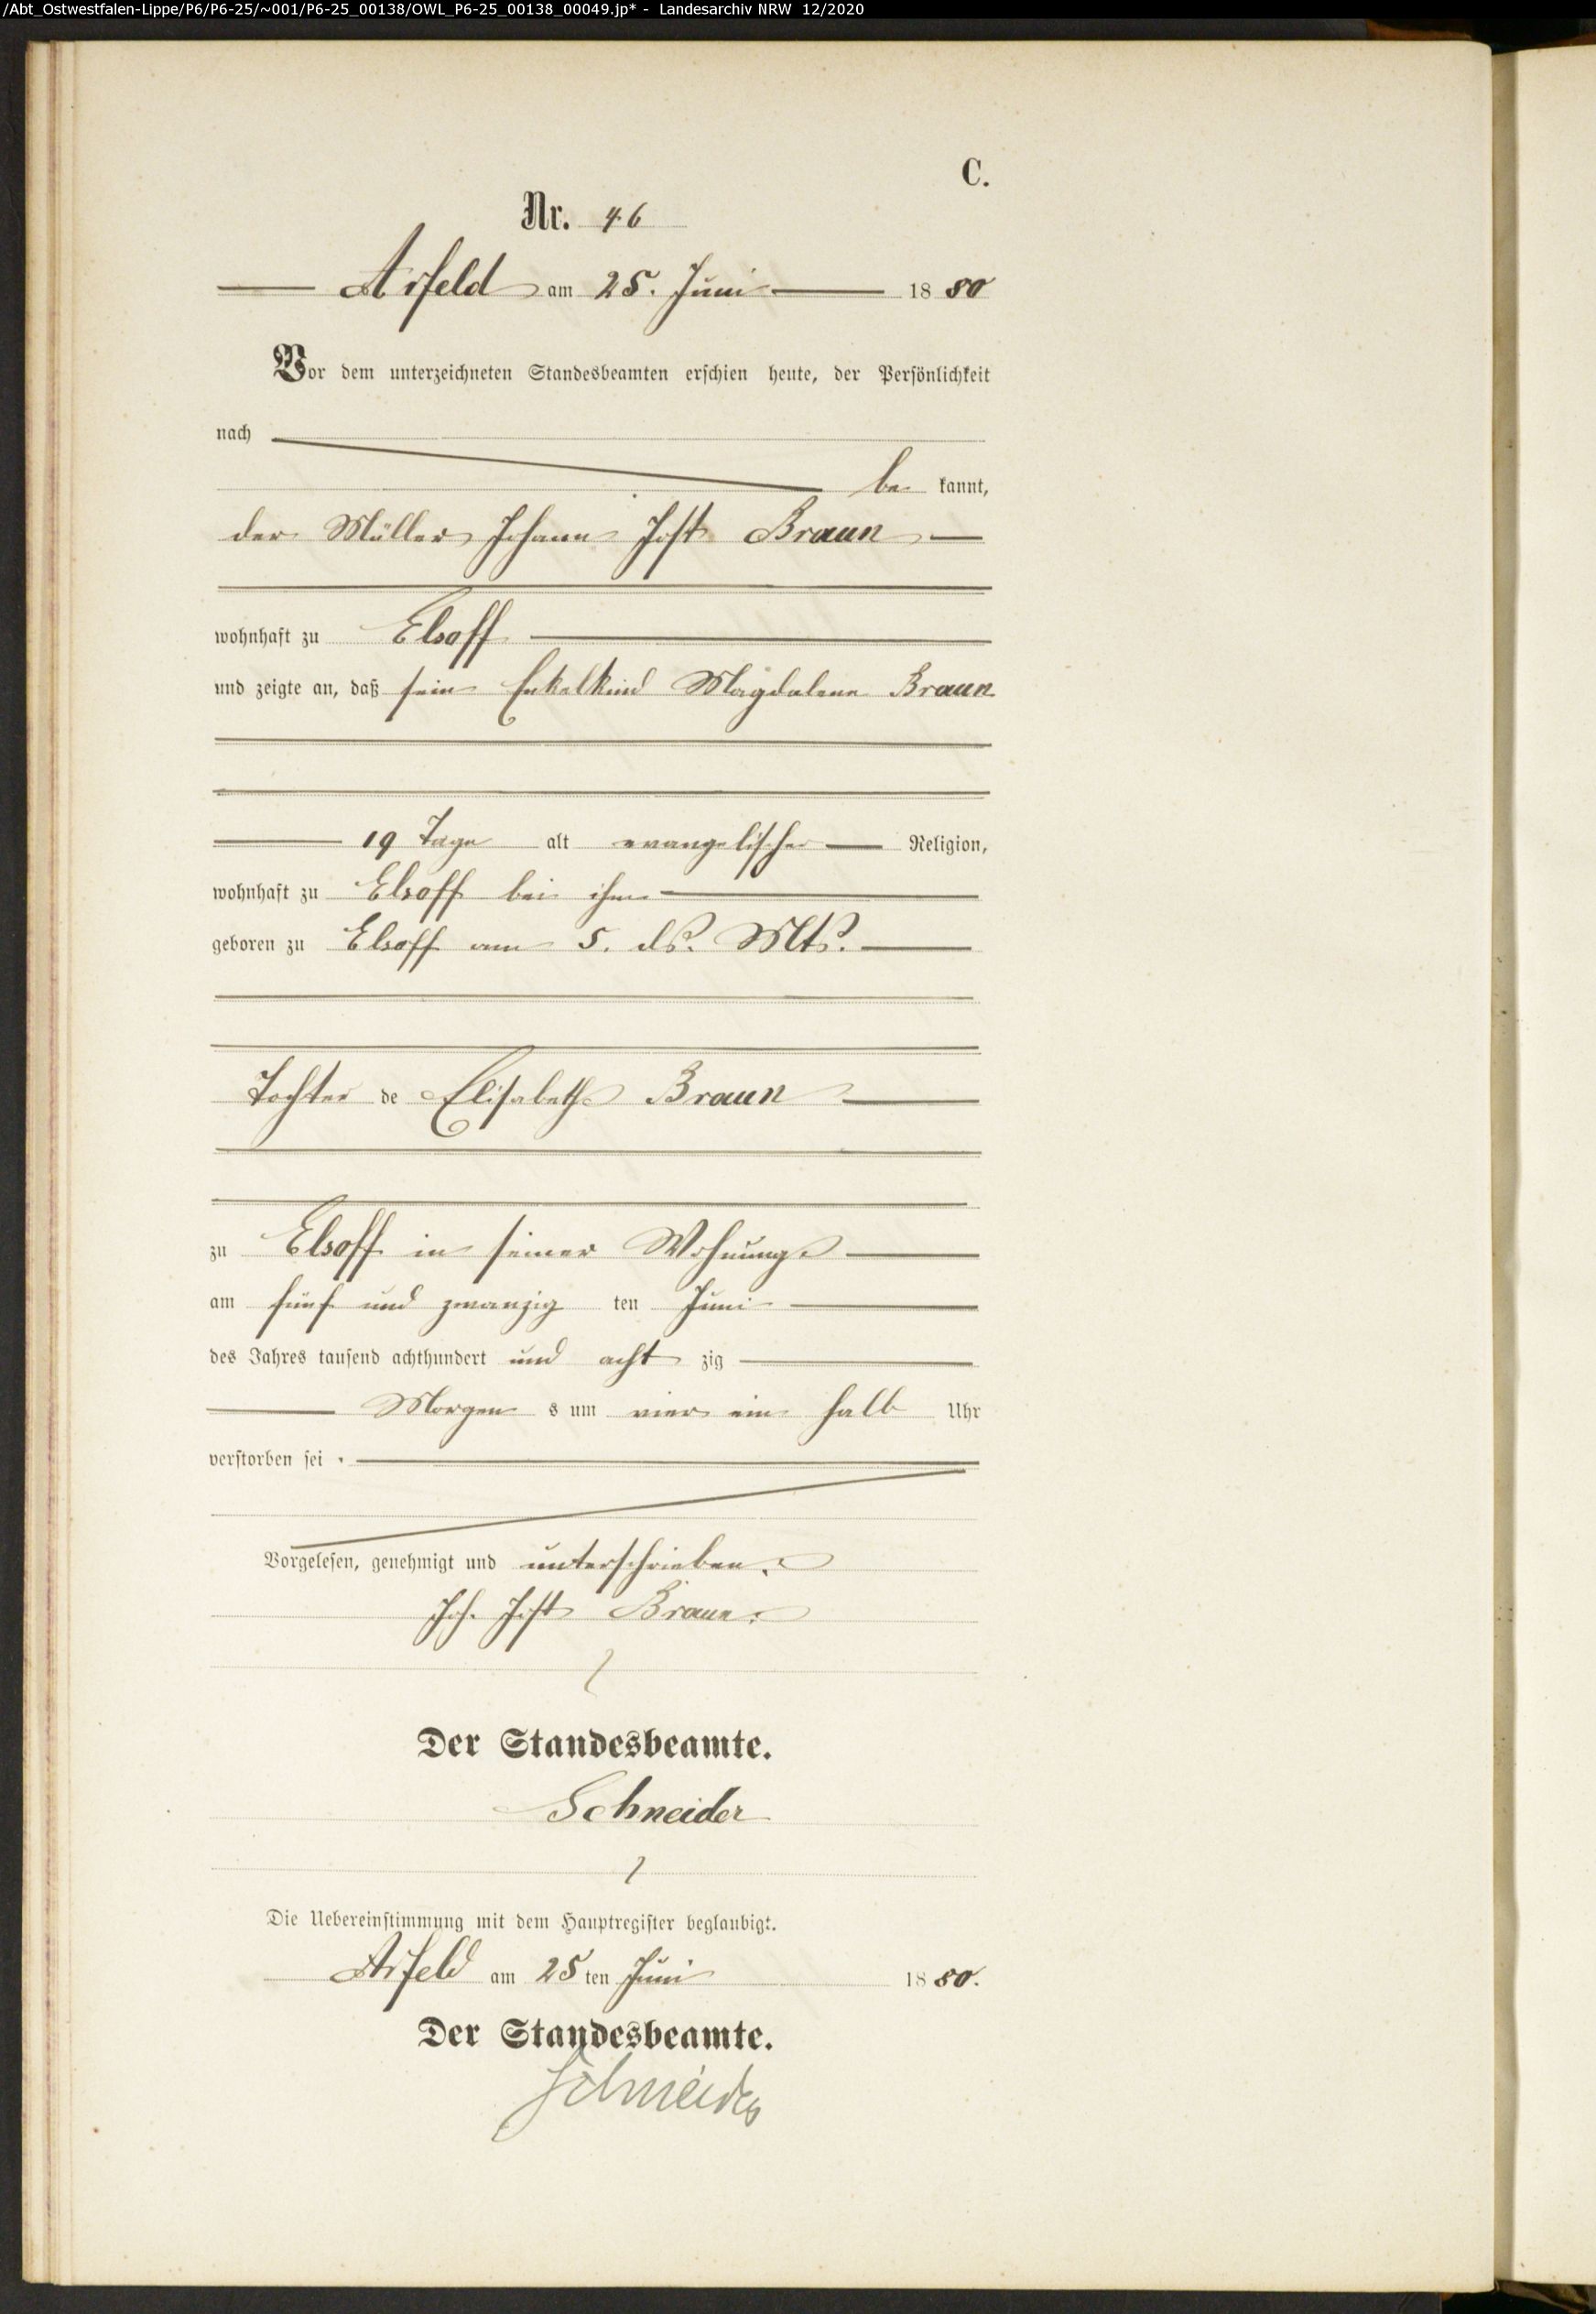 /Abt_Ostwestfalen-Lippe/P6/P6-25/~001/P6-25_00138/OWL_P6-25_00138_00049.jp* - Landesarchiv NRW 12/2020
C.
Nr. 46
Arfeld am 25. Juni 1880
Vor dem unterzeichneten Standesbeamten erschien heute, der Persönlichkeit
nach
be kannt,
der Müller Johann Jost Braun
wohnhaft zu Elsoff
und zeigte an, daß sein Enkelkind Magdalene Braun
19 Tage alt evangelischer Religion,
wohnhaft zu Elsoff bei ihm
geboren zu Elsoff am 5. ds. Mts.
Tochter de Elisabeth Braun
zu Elsoff in seiner Wohnung
am fünf und zwanzig ten Juni
des Jahres tausend achthundert und acht zig
Morgen s um vier ein halb Uhr
verstorben sei.
Vorgelesen, genehmigt und unterschrieben.
Joh. Jost Braun.
Der Standesbeamte.
Schneider
Die Uebereinstimmung mit dem Hauptregister beglaubigt.
Arfeld am 25 ten Juni 1880.
Der Standesbeamte.
Schneider